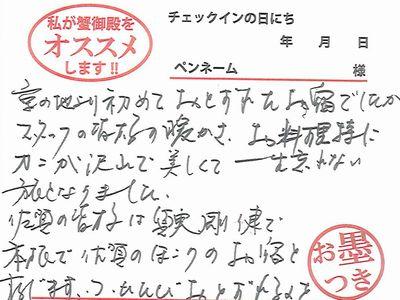 私が蟹御殿を
オススメ
します!!
チェックインの日にち
年 月 日
ペンネーム 様
京の地より初めておとずれたお宿でしたが
スタッフの皆様の暖かさ、お料理特に
カニが沢山で美しくて一生忘れない
旅となりました
佐賀の皆様は質実剛健で
本根で佐賀のほこりのお宿と
存じます。
お墨
つき